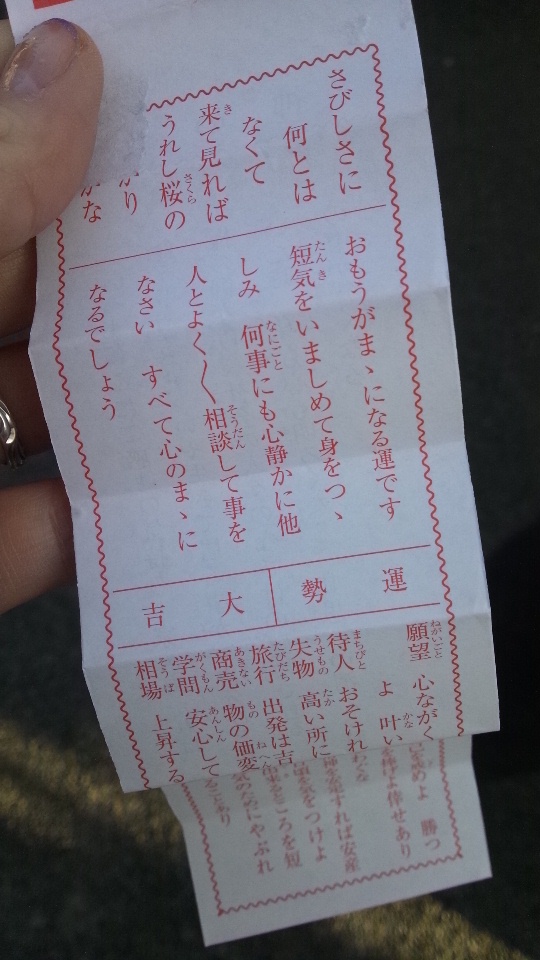 さびしさに
何とは
なくて
来て見れば
うれし桜の
かり
かな
おもうがまゝになる運です
短気をいましめて身をつゝ
しみ 何事にも心静かに他
人とよく〱相談して事を
なさい すべて心のまゝに
なるでしょう
運勢 大吉
願望 心ながく
よ 叶い
待人 おそけれ
失物 高い所に
旅行 出発は吉
商売 物の価変
学問 安心して
相場 上昇する
めよ 勝つ
倖せあり
すれば安産
気をつけよ
ところを短
ためにやぶれ
ことあり